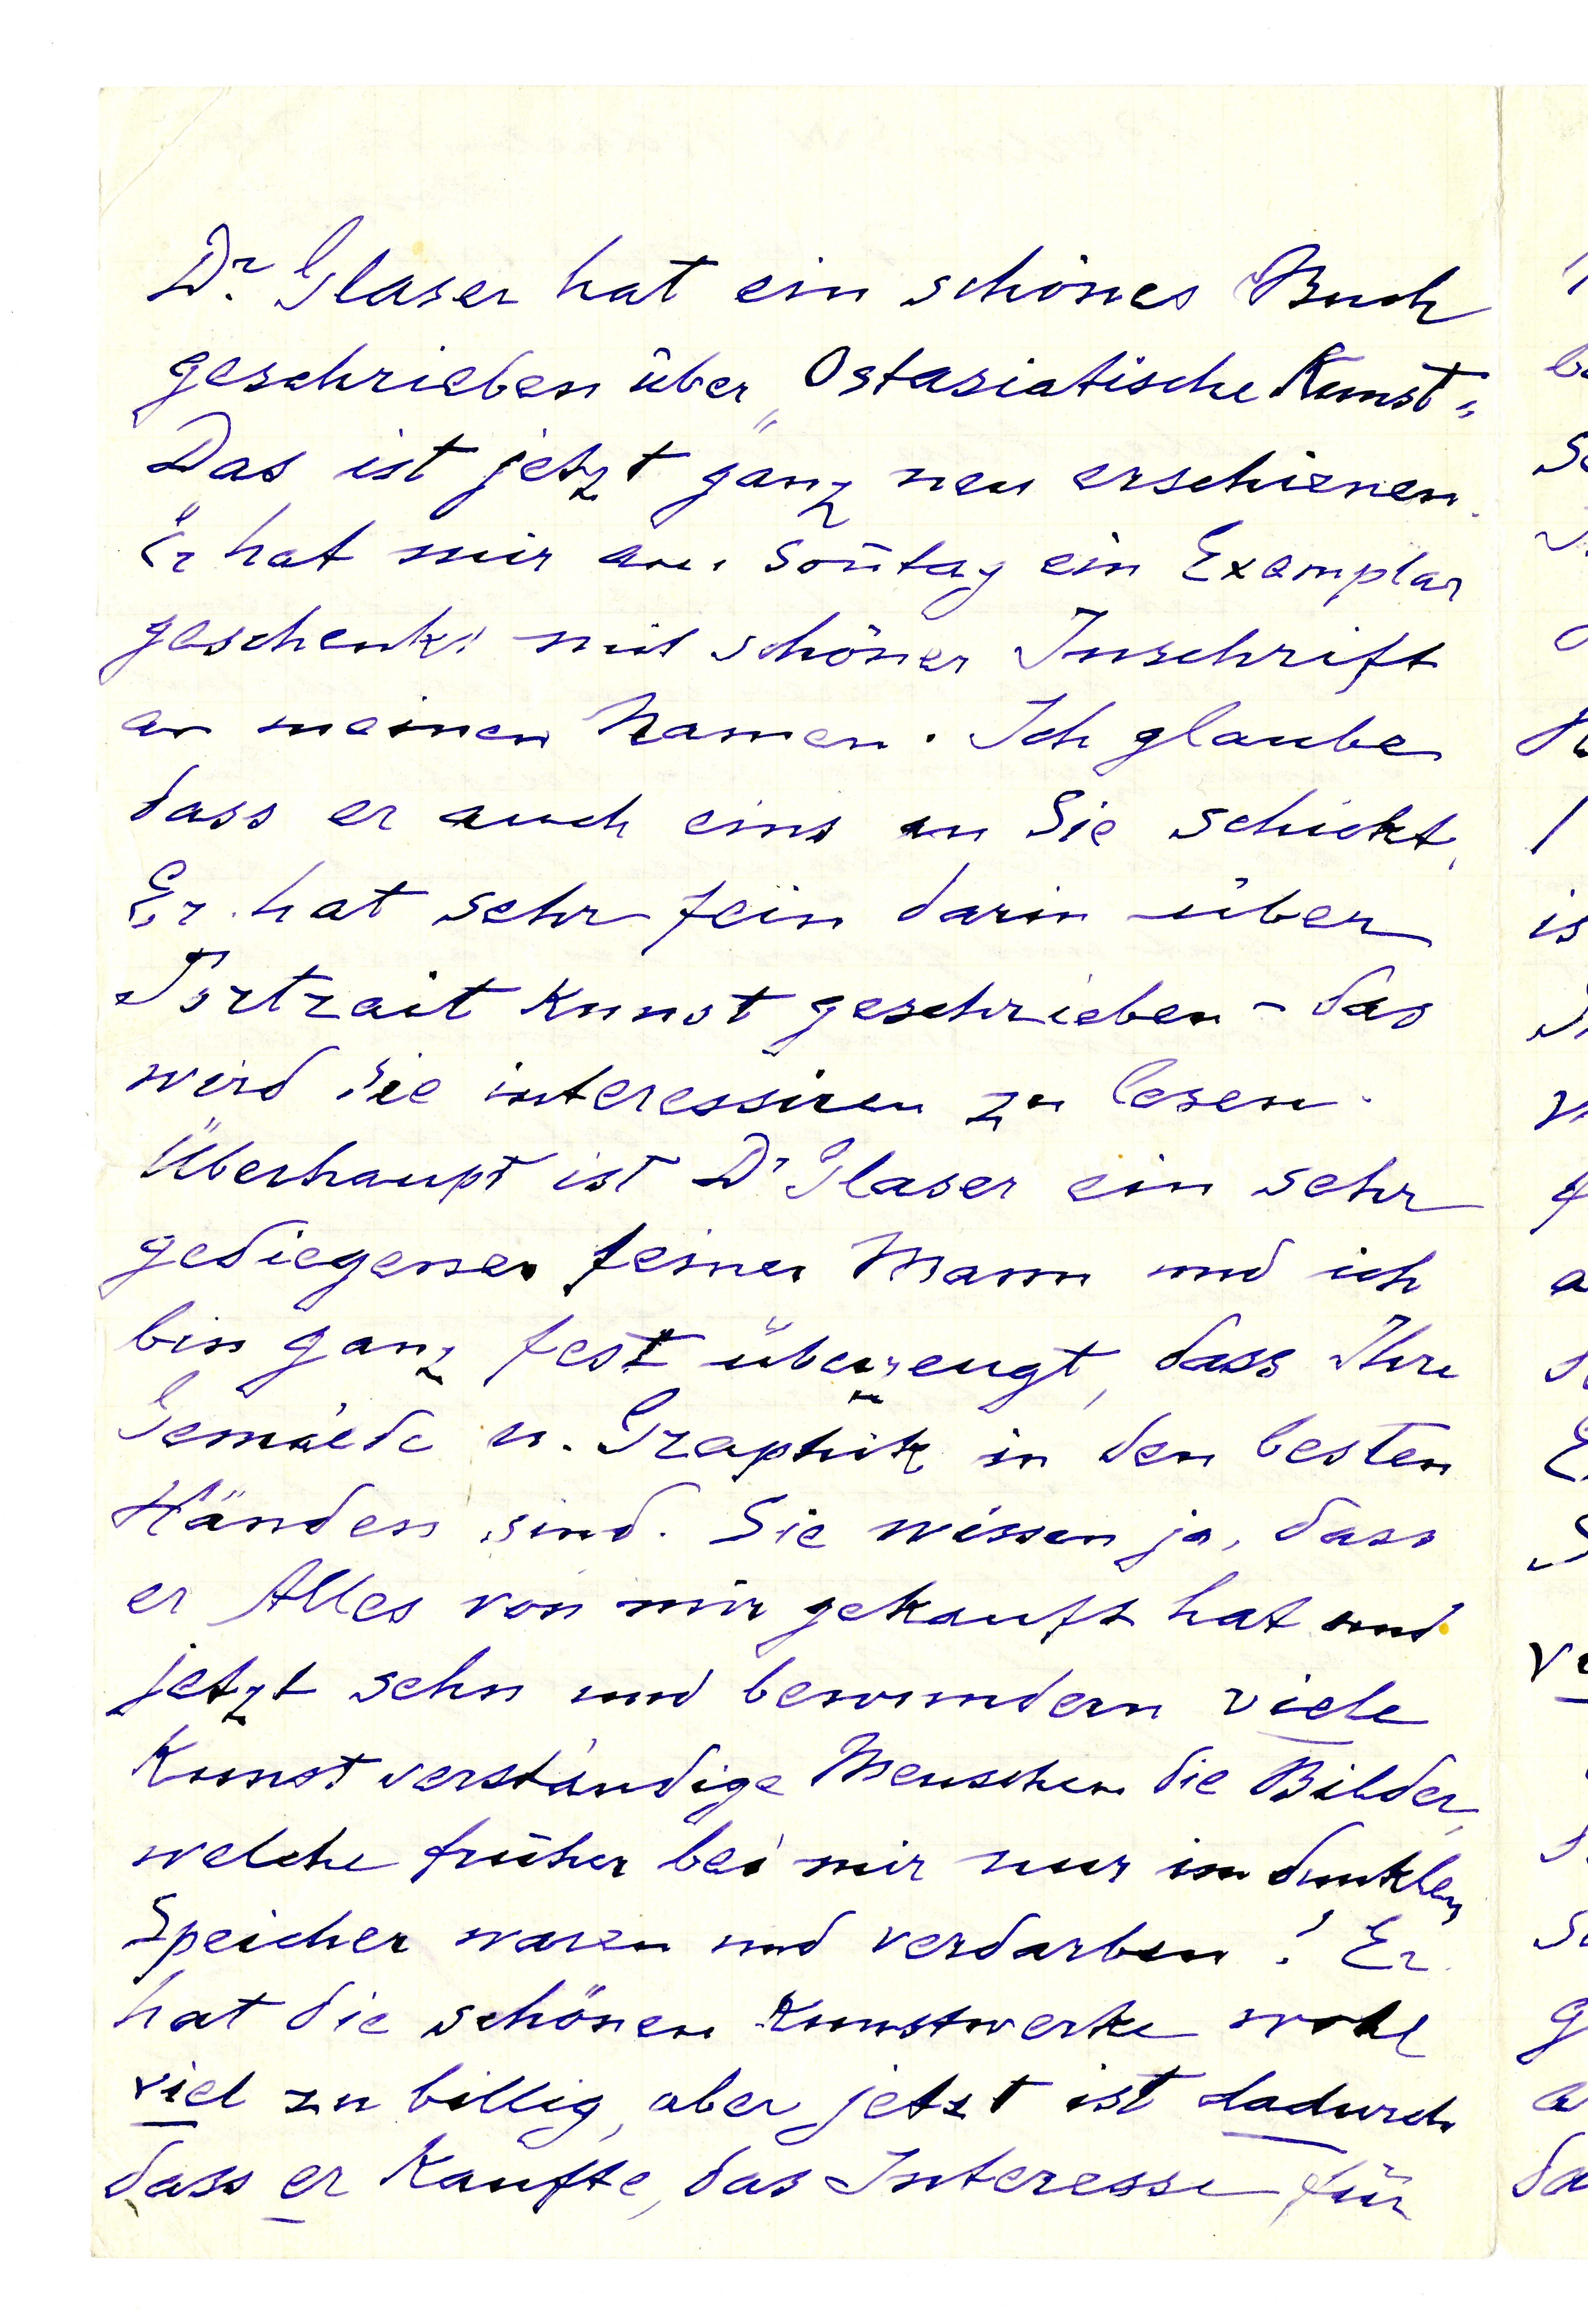 Dr. Glaser hat ein schönes Buch
geschrieben über „Ostasiatische Kunst"
Das ist jetzt ganz neu erschienen.
Er hat mir am Soñtag ein Exemplar
geschenkt mit schöner Inschrift
an meinen Namen. Ich glaube
dass er auch eins an Sie schickt,
Er hat sehr fein darin über
Portrait Kunst geschrieben – das
wird Sie interessiren zu lesen.
Überhaupt ist Dr Glaser ein sehr
gediegener feiner Mann und ich
bin ganz fest überzeugt, dass Ihre
Gemälde u. Graphik in den besten
Händen sind. Sie wissen ja, dass
er Alles von mir gekauft hat und
jetzt sehn und bewundern viele
Kunst verständige Menschen die Bilder,
welche früher bei mir nur im dunklen
Speicher waren und verdarben! Er
hat die schönen Kunstwerke wohl
viel zu billig, aber jetzt ist dadurch
dass er kaufte, das Interesse für